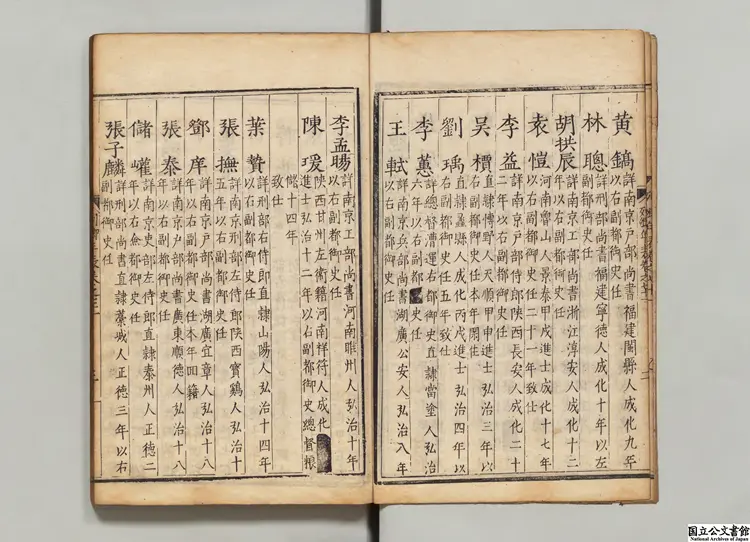 黄鎬 詳南京戶部尚書福建閩縣人成化九年
以右副都御史任
林聰 詳刑部尚書福建寧德人成化十年以左
副都御史任
胡拱辰 詳南京工部尚書浙江淳安人成化十二
年以右副都御史任
袁愷 河南魯山人景泰甲戌進士成化十七年
以右副都御史任二十一年致仕
李益 詳南京戶部侍郎陝西長安人成化二十
二年以右副都御史任
吳 直隸博野人天順甲申進士弘治三年以
右副都御史任本年閑住
劉瑀 直隸蠡縣人成化丙戌進士弘治四年以
右副都御史任五年致仕
李蕙 詳總督漕運右都御史直隸當塗人弘治
六年以右副都 史任
王軾 詳南京兵部尚書湖廣公安人弘治八年
以右副都御史任
李孟暘 詳南京工部尚書河南睢州人弘治十年
以右副都御史任
陳瑗 陝西甘州左衛籍河南祥符人成化
進士弘治十二年以右副都御史總督糧
儲十四年
致仕
葉贄 詳刑部右侍郎直隸山陽人弘治十四年
以右副都御史任
張撫 詳南京刑部左侍郎陝西寶鷄人弘治十
五年以右副都御史任
鄧庠 詳南京戶部尚書湖廣宜章人弘治十八
年以右副都御史任本年回籍
張泰 詳南京戶部尚書廣東順德人弘治十八
年以右副都御史任
儲巏 詳南京吏部左侍郎直隸泰州人正德二
年以右僉都御史任
張子麟 詳刑部尚書直隸藁城人正德三年以右
副都御史任
国立公文書館
National Archives of Japan